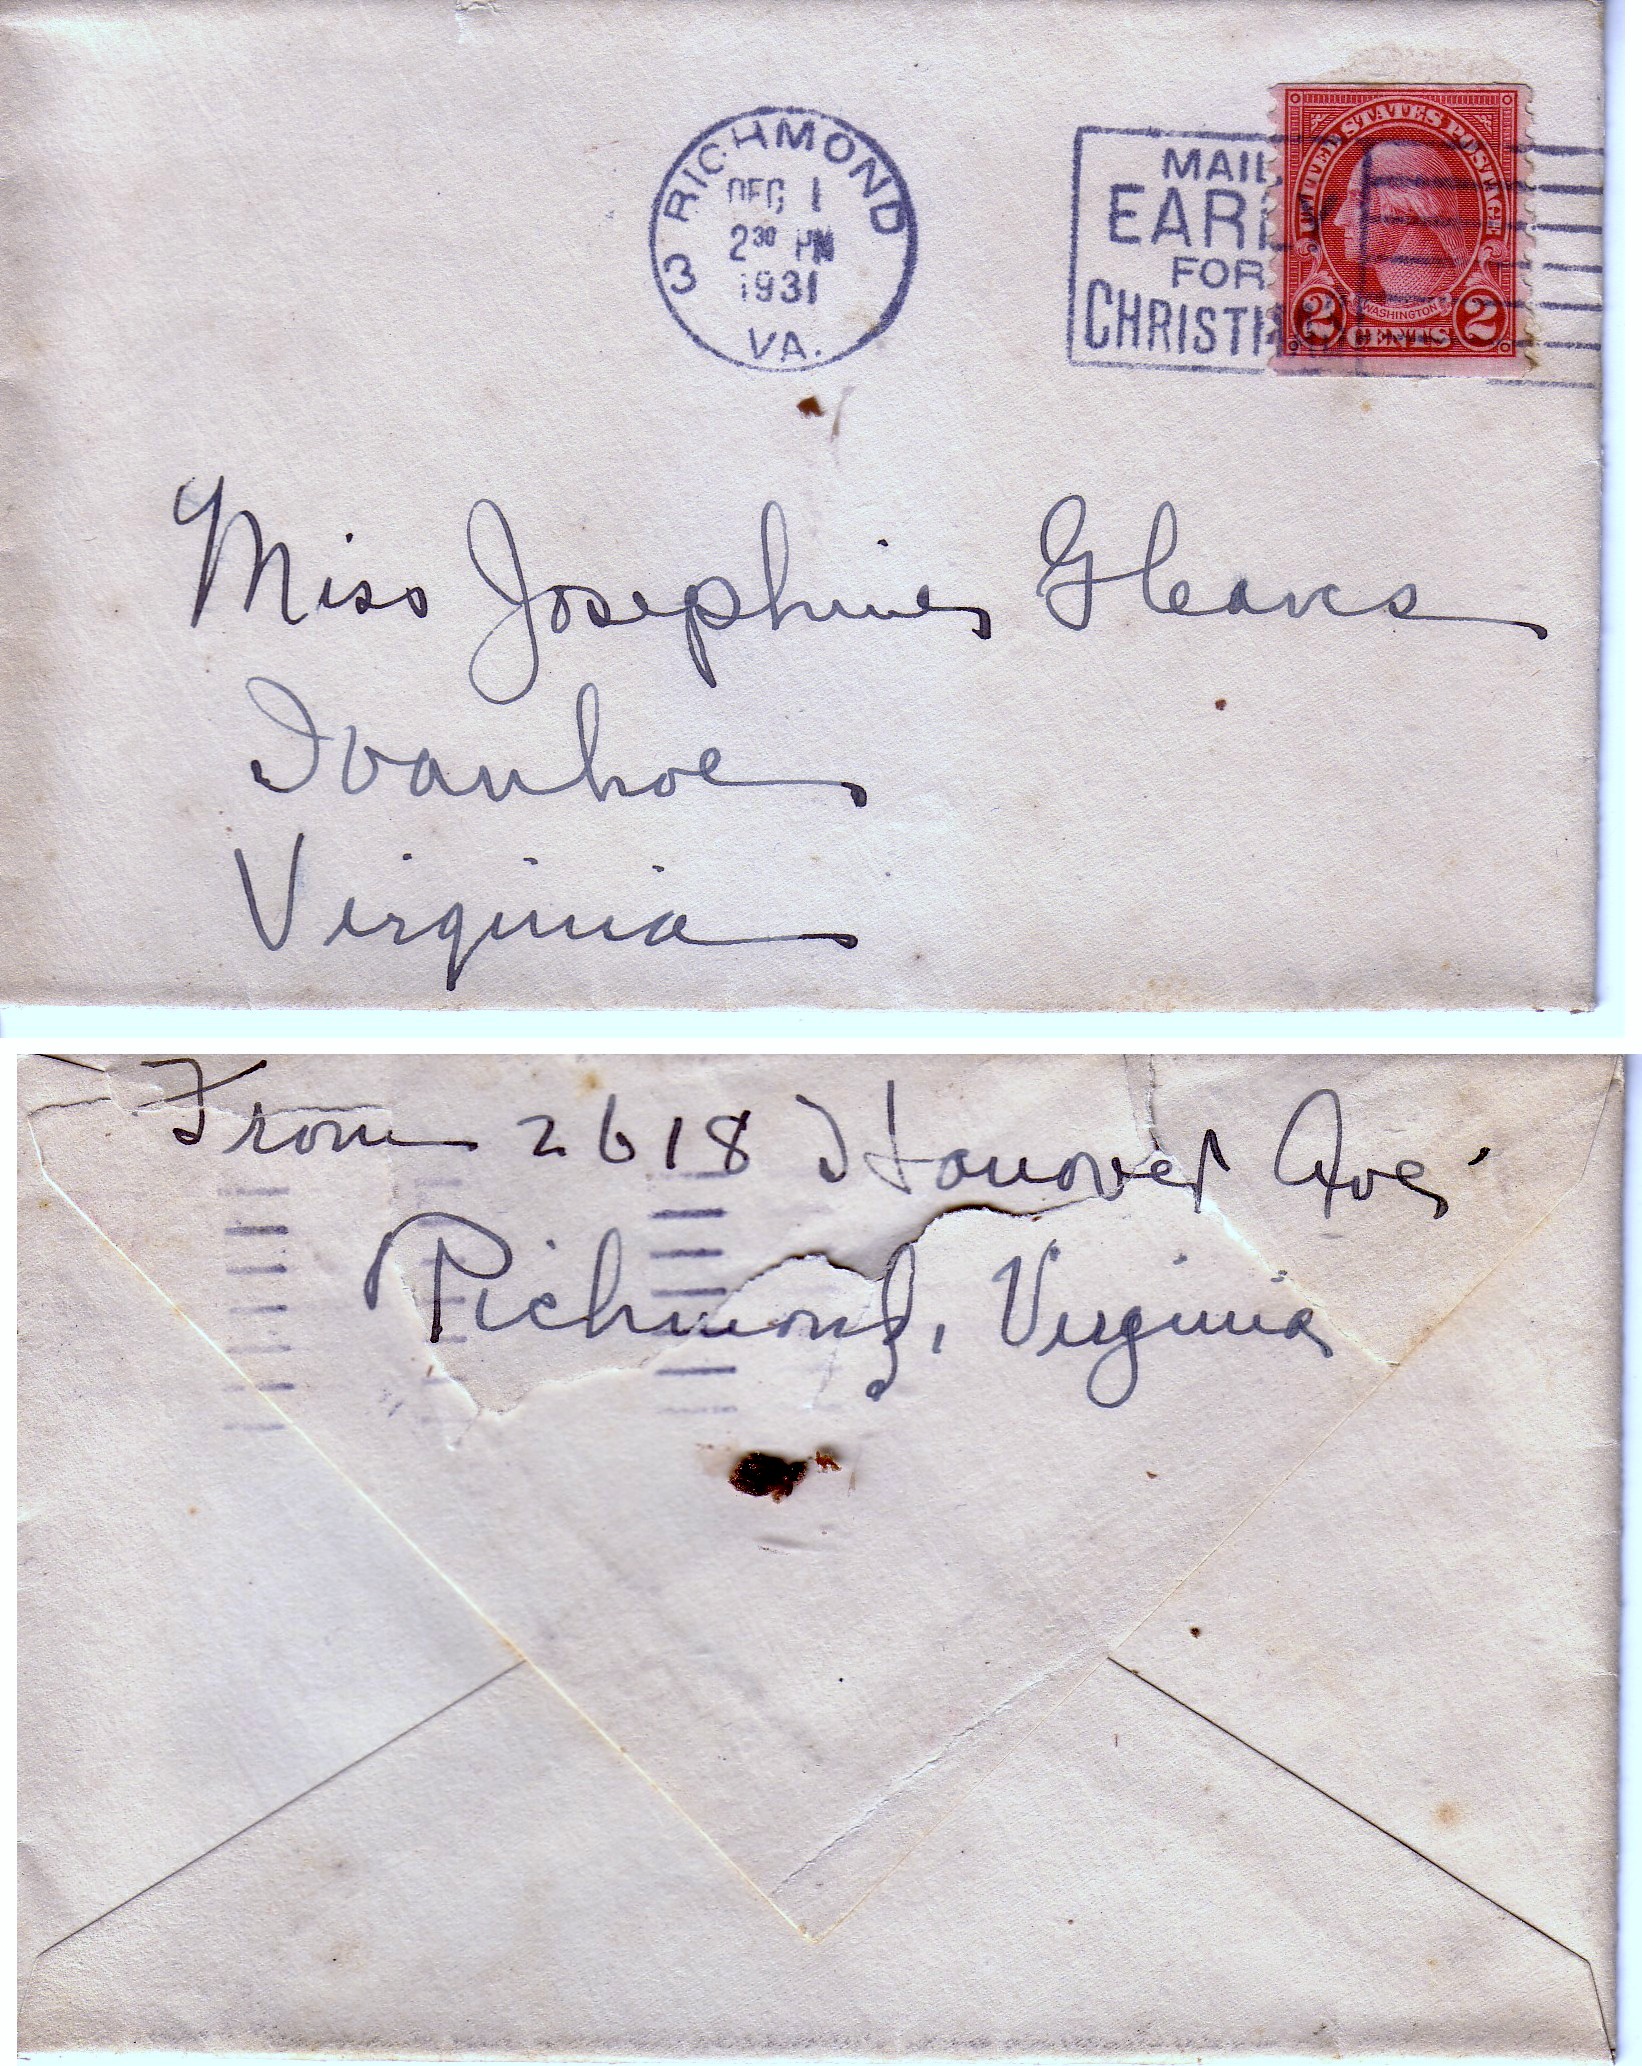 RICHMOND
DEC 1
2 30 PM
1931
3
VA.
MAIL
EARLY
FOR
CHRISTMAS
UNITED STATES POSTAGE
WASHINGTON
2 CENTS 2
Miss Josephine Gleaves
Ivanhoe
Virginia
From 2618 Hanover Ave
Richmond, Virginia